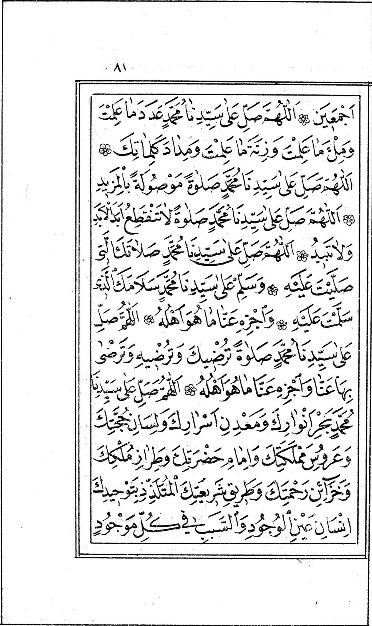 ٨١
اَجْمَعِينَ ۞ اَللّٰهُمَّ صَلِّ عَلٰى سَيِّدِنَا مُحَمَّدٍ عَدَدَ مَا عَلِمْتَ
وَمِلْءَ مَا عَلِمْتَ وَزِنَةَ مَا عَلِمْتَ وَمِدَادَ كَلِمَاتِكَ ۞
اَللّٰهُمَّ صَلِّ عَلٰى سَيِّدِنَا مُحَمَّدٍ صَلٰوةً مَوْصُولَةً بِالْمَزِيدِ
۞ اَللّٰهُمَّ صَلِّ عَلٰى سَيِّدِنَا مُحَمَّدٍ صَلٰوةً لَا تَنْقَطِعُ اَبَدَ الْاَبَدِ
وَلَا تَبِيدُ ۞ اَللّٰهُمَّ صَلِّ عَلٰى سَيِّدِنَا مُحَمَّدٍ صَلَاتَكَ الَّتِى
صَلَّيْتَ عَلَيْهِ ۞ وَسَلِّمْ عَلٰى سَيِّدِنَا مُحَمَّدٍ سَلَامَكَ الَّذِى
سَلَّمْتَ عَلَيْهِ ۞ وَاجْزِهِ عَنَّا مَا هُوَ اَهْلُهُ ۞ اَللّٰهُمَّ صَلِّ
عَلٰى سَيِّدِنَا مُحَمَّدٍ صَلٰوةً تُرْضِيكَ وَتُرْضِيهِ وَتَرْضٰى
بِهَا عَنَّا وَاجْزِهِ عَنَّا مَا هُوَ اَهْلُهُ ۞ اَللّٰهُمَّ صَلِّ عَلٰى سَيِّدِنَا
مُحَمَّدٍ بَحْرِ اَنْوَارِكَ وَمَعْدِنِ اَسْرَارِكَ وَلِسَانِ حُجَّتِكَ
وَعَرُوسِ مَمْلَكَتِكَ وَاِمَامِ حَضْرَتِكَ وَطِرَازِ مُلْكِكَ
وَخَزَآئِنِ رَحْمَتِكَ وَطَرِيقِ شَرِيعَتِكَ الْمُتَلَذِّذِ بِتَوْحِيدِكَ
اِنْسَانِ عَيْنِ الْوُجُودِ وَالسَّبَبِ فِى كُلِّ مَوْجُودٍ